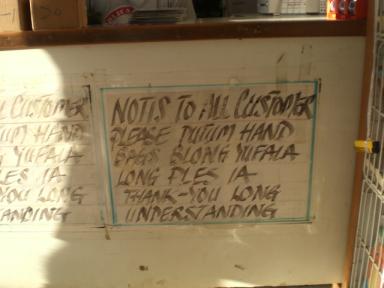 NOTIS TO ALL CUSTOMER
PLEASE PUTUM HAND
BAGS BLONG YUFALA
LONG PLES IA
THANK-YOU LONG
UNDERSTANDING
CUSTOMER
HAND
YUFALA
IA
YOU LONG
ANDING